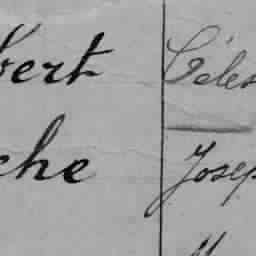 bert Céles
che Josep